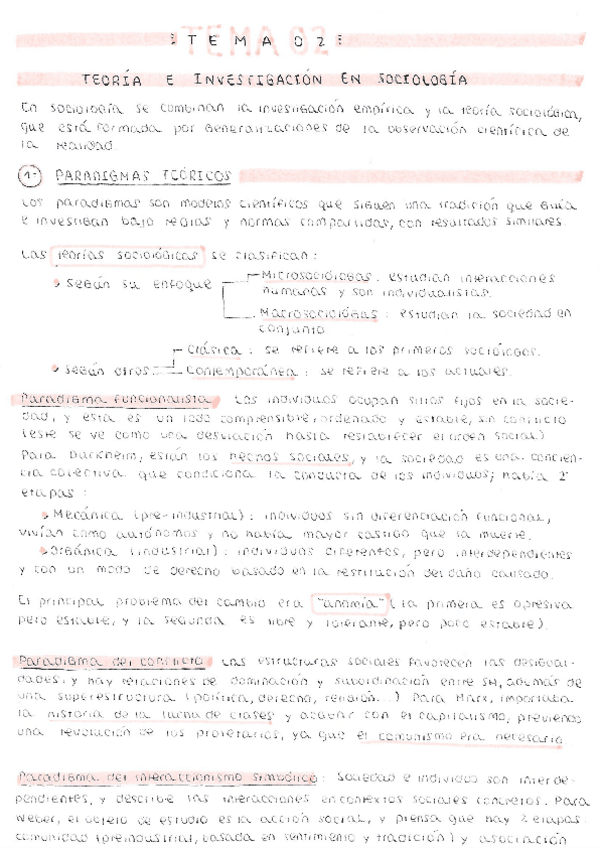 TEMA 02
TEORÍA E INVESTIGACIÓN EN SOCIOLOGÍA
En sociología se combinan la investigación empírica y la teoría sociológica,
que está formada por generalizaciones de la observación científica de
la realidad.
1- PARADIGMAS TEÓRICOS
Los paradigmas son modelos científicos que siguen una tradición que guía
e investigan bajo reglas y normas compartidas, con resultados similares
Las teorías sociológicas se clasifican:
Según su enfoque
Microsociólogas: estudian interacciones
humanas y son individualistas.
Macrosociólogas: estudian la sociedad en
conjunto
Clásica: se refiere a los primeros sociólogos.
Según otros
Contemporánea: se refiere a los actuales.
Paradigma funcionalista Los individuos ocupan sitios fijos en la socie-
dad, y esta es un todo comprensible, ordenado y estable, sin conflicto
(este se ve como una desviación hasta restablecer el orden social)
Para Durkheim, están los hechos sociales, y la sociedad es una concien-
cia colectiva que condiciona la conducta de los individuos; había 2
etapas:
Mecánica (pre-industrial): individuos sin diferenciación funcional,
vivían como autónomos y no había mayor castigo que la muerte.
Orgánica (industrial): individuos diferentes, pero interdependientes
y con un modo de derecho basado en la restitución del daño causado.
El principal problema del cambio era "anomia" (la primera es opresiva
pero estable, y la segunda es libre y tolerante, pero poco estable).
Paradigma del conflicto Las estructuras sociales favorecen las desigual-
dades, y hay relaciones de dominación y subordinación entre SH, además de
una superestructura (política, derecho, religión...) Para Marx, importaba
la historia de la lucha de clases y acabar con el capitalismo, previendo
una revolución de los proletarios, ya que el comunismo era necesario
Paradigma del interaccionismo simbólico: Sociedad e individuo son interde-
pendientes, y describe las interacciones en contextos sociales concretos. Para
Weber, el objeto de estudio es la acción social, y piensa que hay 2 etapas:
comunidad (preindustrial, basada en sentimiento y tradición) y asociación